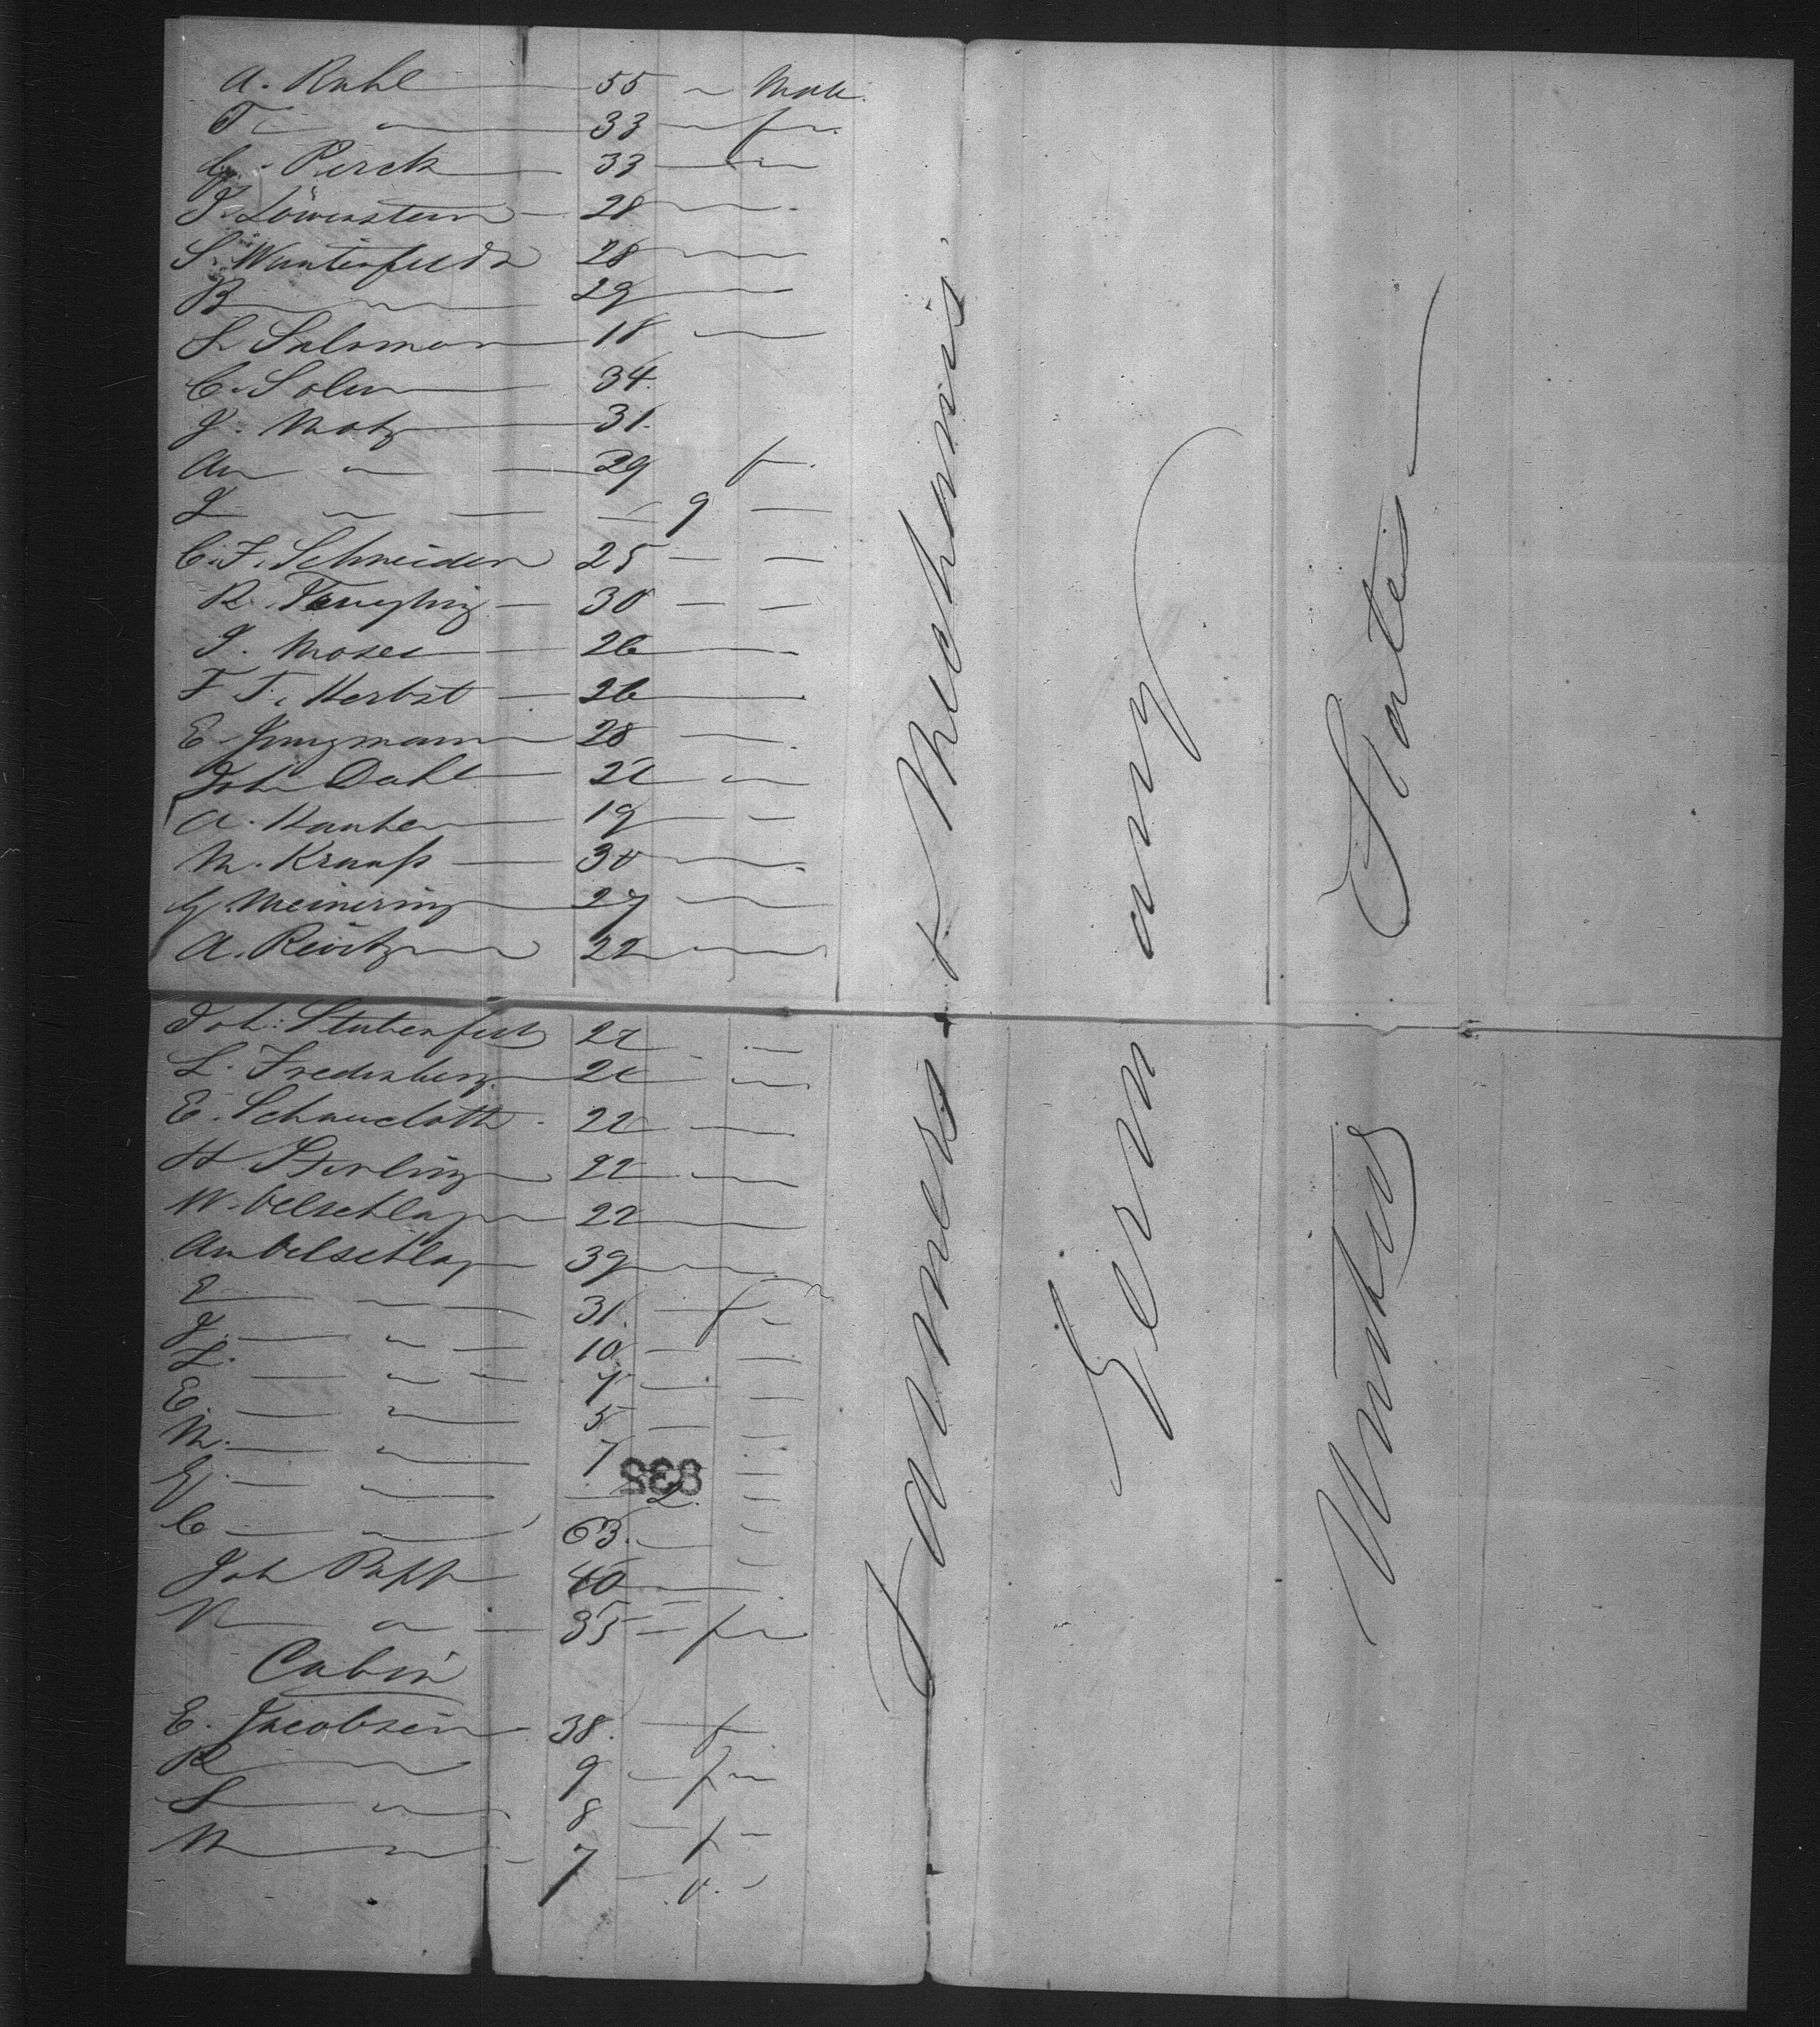 A. Ruhl — 55 " Male
T — " — 33 — f
G. Pierck — 33 — "
J. Löwenstein — 28 —
S. Winterfeldt 28 —
B — " — 29 —
S Salomon — 18 —
C. Solm — 34.
J. Motz — 31.
An — " — 29 f.
L — " — 9 —
C. F. Schneider 25 — —
R. — 30 — —
J. Moses — 26 —
F. T. Herbst — 26 —
E. Jungmann — 28 —
Joh Dahl — 22 "
A. Hauber — 19 — —
M. Krauß — 30 —
G. Meinering — 27 —
A. — 22 —
Joh: 22 —
L. Fredenberg — 22 —
E. 22 —
H Sterling 22 —
W. Oelschlag 22 —
An Oelschlag 39 —
E — " — 31. — f
J. — " — 10 — —
L. — " — 7 — —
E. — " — 5 — —
M. — " — 7 —
832
G — " — 2. —
C — " — 63. —
Joh Rupp 40 —
M — " — 35 — f
Cabin
E. Jacobsen 38. — f
R — " 9 — f
S — " 8 — f
M — " — 7 —
Farmers & Mechanics
Germany
United States